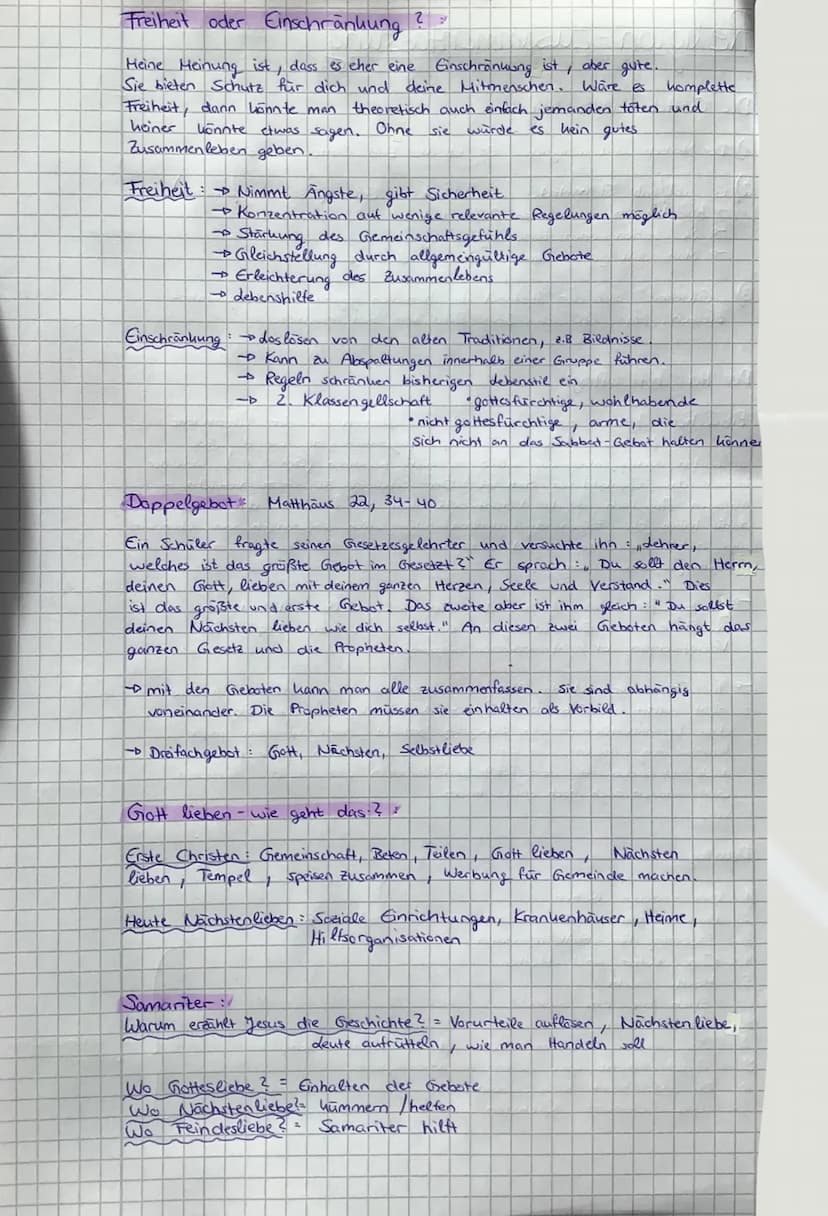 Freiheit oder Einschränkung?:
Meine Meinung ist, dass es eher eine Einschränkung ist, aber gute.
Sie bieten Schutz für dich und deine Mitmenschen. Wäre es komplette
Freiheit, dann könnte man theoretisch auch einfach jemanden töten und
keiner könnte etwas sagen. Ohne sie würde es kein gutes
Zusammenleben geben.
Freiheit: → Nimmt Ängste, gibt Sicherheit
→ Konzentration auf wenige relevante Regelungen möglich
→ Stärkung des Gemeinschaftsgefühls
→ Gleichstellung durch allgemeingültige Gebote
→ Erleichterung des Zusammenlebens
→ Lebenshilfe
Einschränkung: → Loslösen von den alten Traditionen, z.B Bildnisse.
→ Kann zu Abspaltungen innerhalb einer Gruppe führen.
→ Regeln schränken bisherigen Lebenstil ein
→ 2. Klassengellschaft • gottesfürchtige, wohlhabende
• nicht gottesfürchtige, arme, die
sich nicht an das Sabbat-Gebot halten könne
Doppelgebot: Matthäus 22, 34-40
Ein Schüler fragte seinen Gesetzesgelehrter und versuchte ihn: „Lehrer,
welches ist das größte Gebot im Gesetzt?" Er sprach: „Du sollt den Herrn,
deinen Gott, lieben mit deinem ganzen Herzen, Seele und Verstand." Dies
ist das größte und erste Gebot. Das zweite aber ist ihm gleich: "Du sollst
deinen Nächsten lieben wie dich selbst." An diesen zwei Geboten hängt das
ganzen Gesetz und die Propheten.
→ mit den Geboten kann man alle zusammenfassen. Sie sind abhängig
voneinander. Die Propheten müssen sie einhalten als Vorbild.
→ Dreifachgebot: Gott, Nächsten, Selbstliebe
Gott lieben - wie geht das?:
Erste Christen: Gemeinschaft, Beten, Teilen, Gott lieben, Nächsten
lieben, Tempel, speisen zusammen, Werbung für Gemeinde machen.
Heute Nächstenlieben: Soziale Einrichtungen, Krankenhäuser, Heime,
Hilfsorganisationen
Samariter:
Warum erzählt Jesus die Geschichte? = Vorurteile auflösen, Nächstenliebe,
Leute aufrütteln, wie man Handeln soll
Wo Gottesliebe? = Einhalten der Gebote
Wo Nächstenliebe?= kümmern /helfen
Wo Feindesliebe? = Samariter hilft